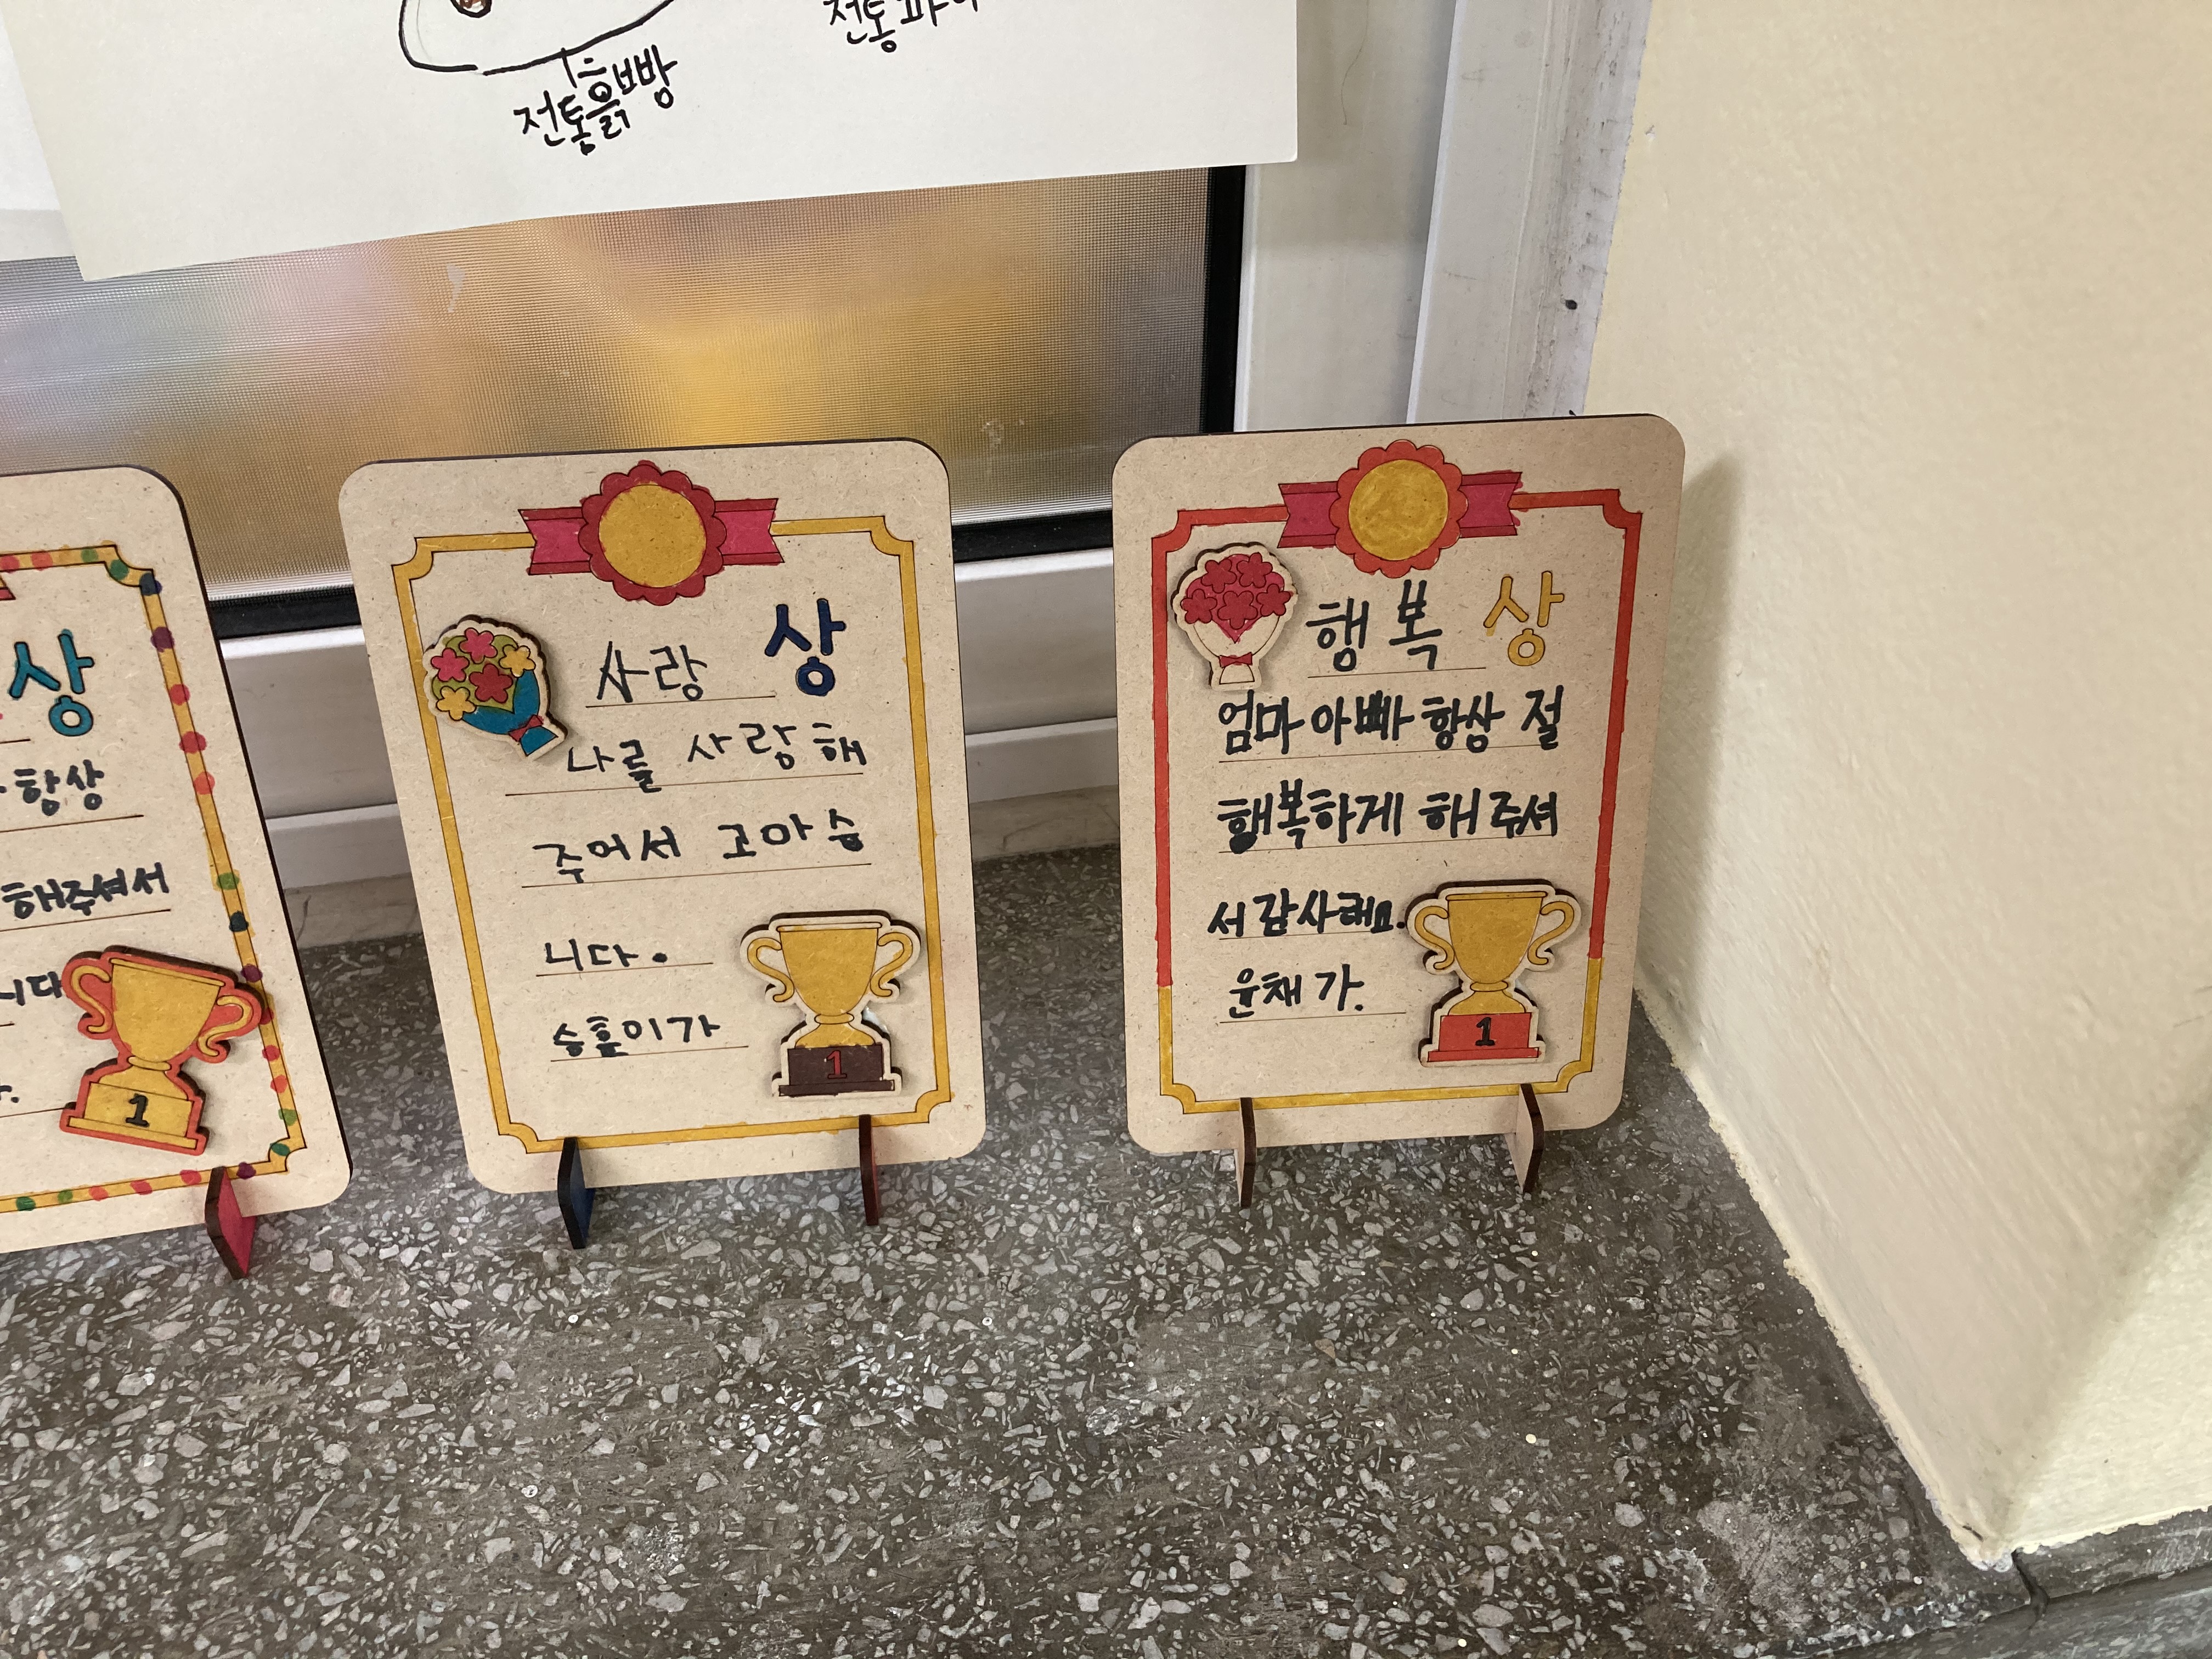 전통흙방
상
항상
해주셔서
니다
1
사랑 상
나를 사랑해
주어서 고마습
니다.
승흘이가
1
행복 상
엄마 아빠 항상 절
행복하게 해주셔
서 감사해요.
윤채가.
1